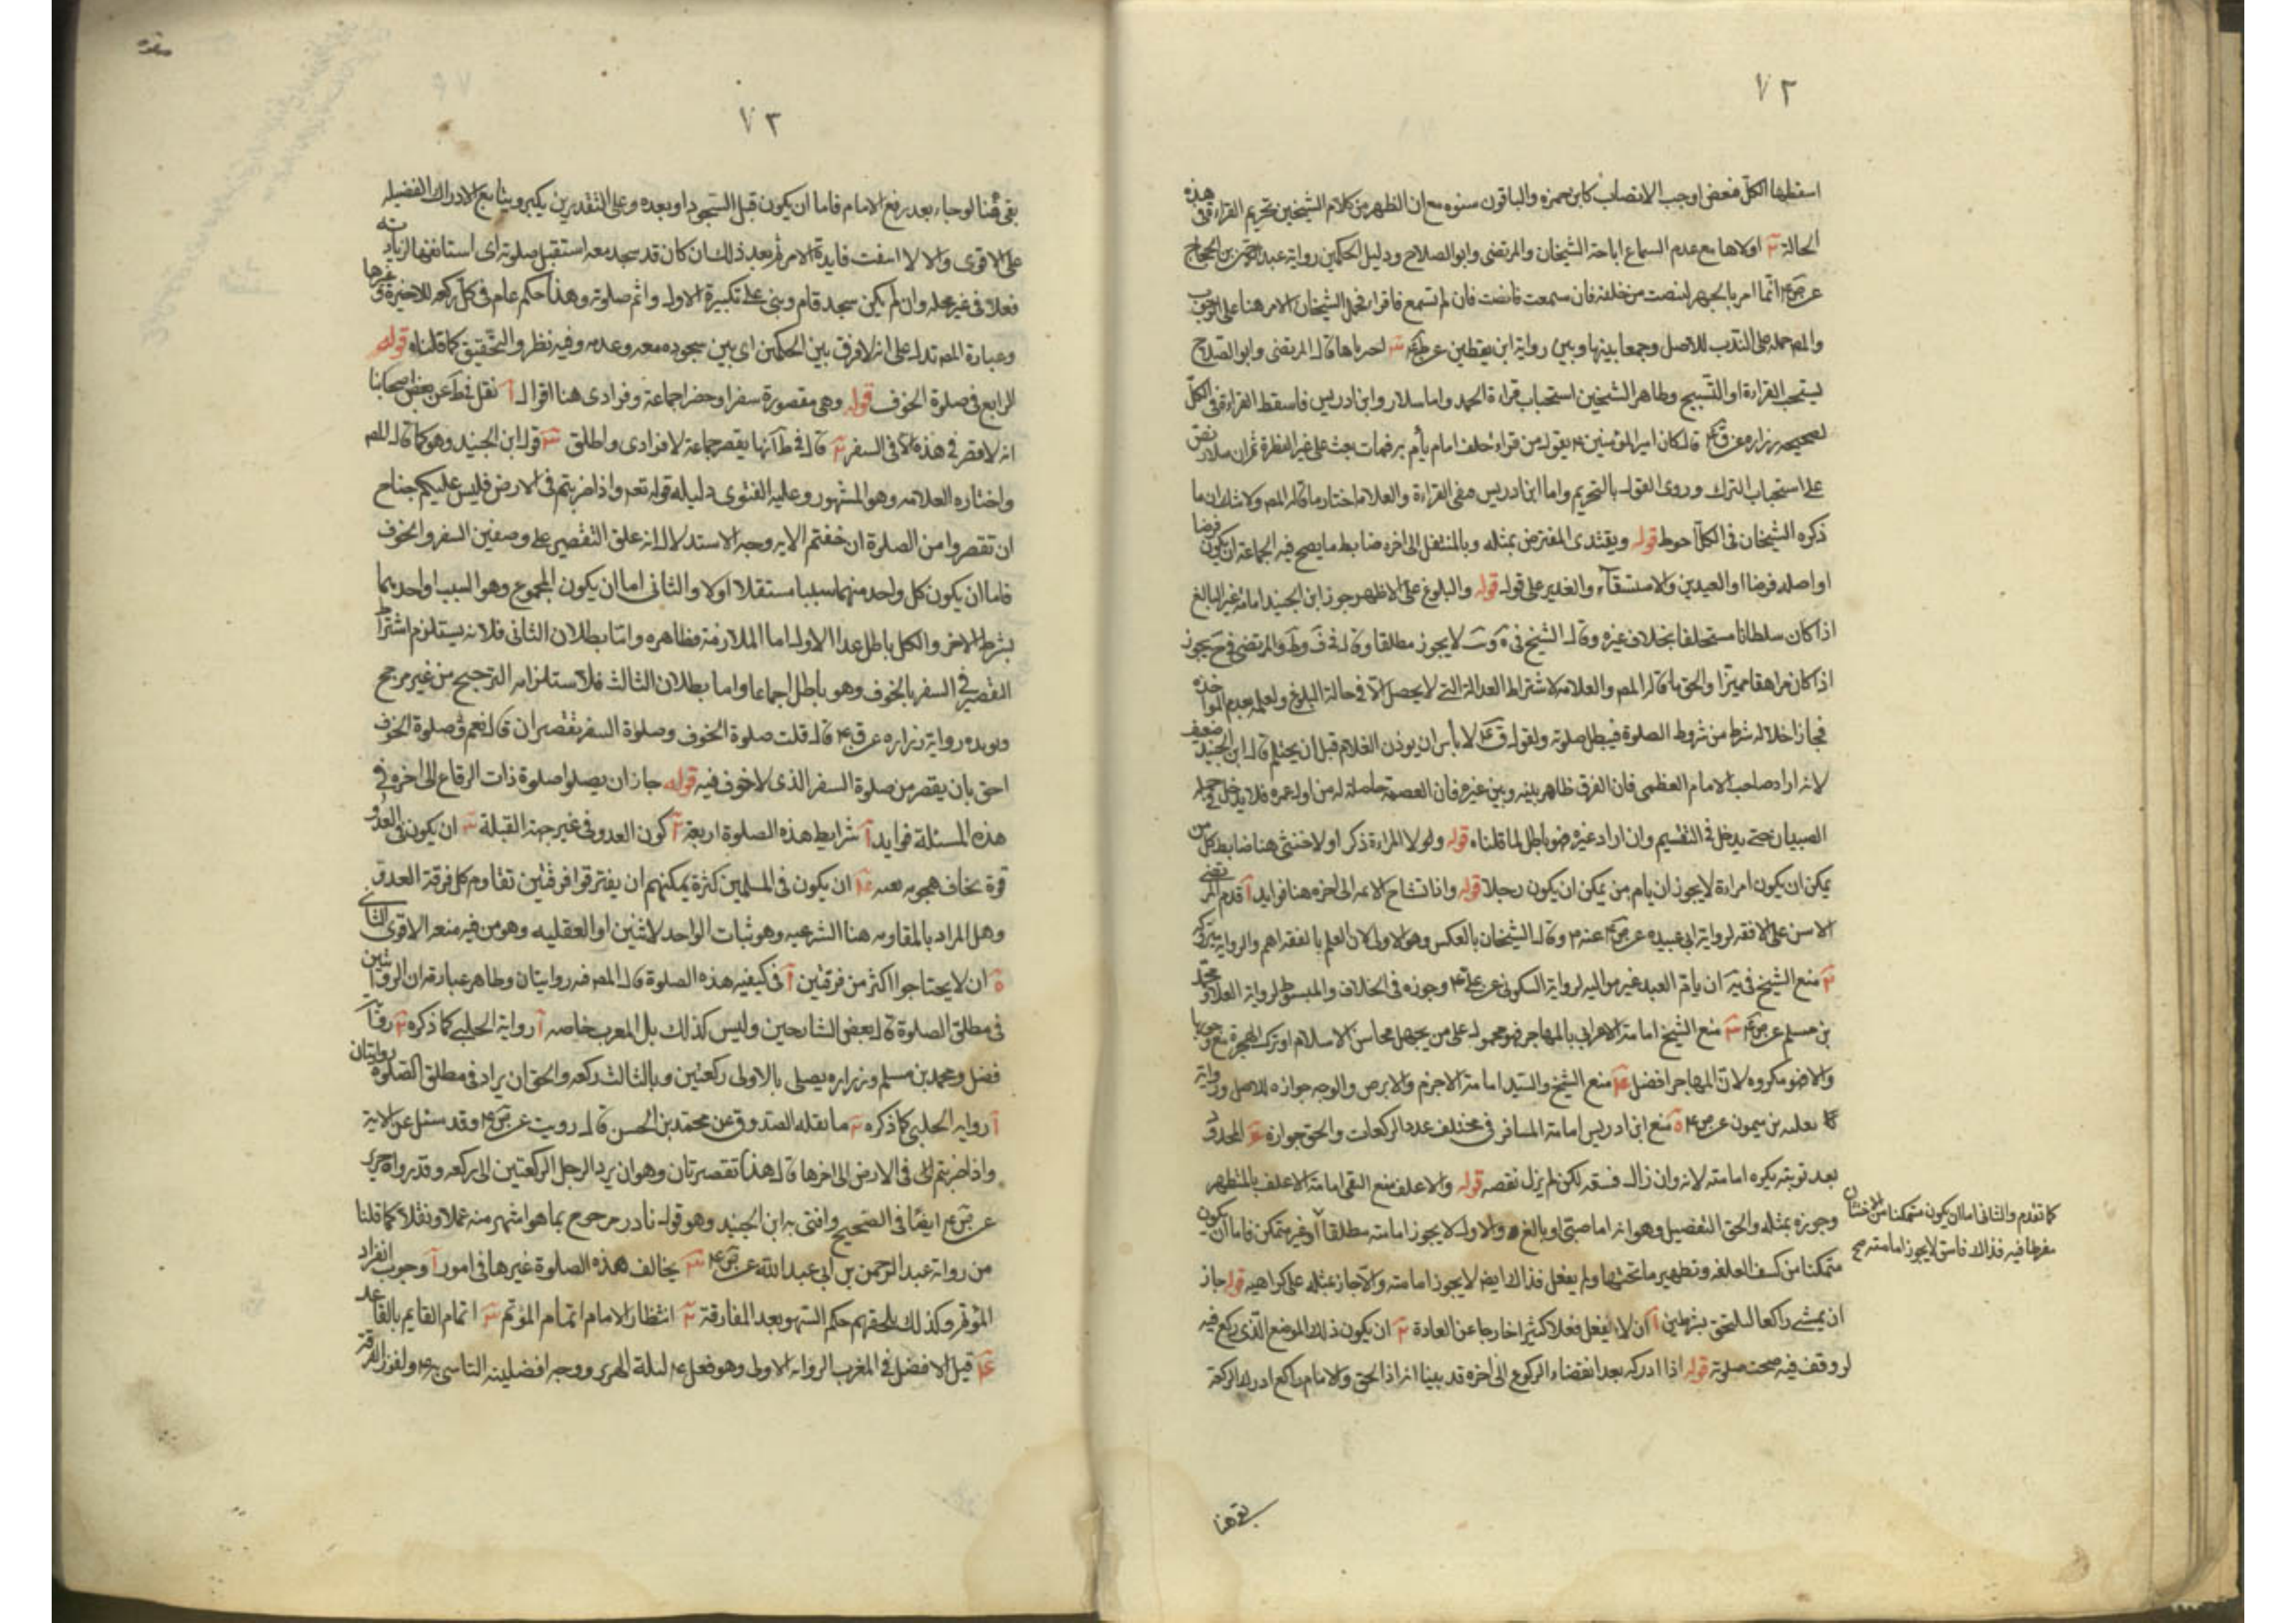 ٧٢
استطها الكل فبعض اوجب الانصات كابن حمزه والباقون سنوه مع ان الظهر من كلام الشيخين تحريم القراءة في هذه
الحالة ٢ اولاها مع عدم السماع اباحة الشيخان والمرتضى وابو الصلاح ودليل الحكمين رواية عبد الرحمن بن الحجاج
عن ص ع انما امر بالجهر لينصت من خلفه فان سمعت فانصت فان لم تسمع فاقراء فحمل الشيخان الامر هنا على الوجوب
والمص حمله على الندب للاصل وجمعا بينها وبين رواية ابن يقطين عن ٣ اخرياها قال المرتضى وابو الصلاح
يستحب القراءة او التسبيح وظاهر الشيخين استحباب قراءة الحمد واما سلار وابن ادريس فاسقط القراءة في الكل
لصحيحه زراره عن ق ع قال كان امير المؤمنين ع يقول من قراء خلف امام يأتم به فمات بعث على غير الفطرة ثم ان سلار نص
على استحباب الترك وروى القول بالتحريم واما ابن ادريس فنفى القراءة والعلامه اختار ما قاله المص ولا شك ان ما
ذكره الشيخان في الكل احوط قوله ويقتدى المفترض بمثله وبالمتنفل الى اخره ضابط ما يصح فيه الجماعة ان يكون فرضا
او اصله فرضا او العيدين والاستسقاء والغدير على قول قوله والبلوغ على الاظهر جوز ابن الجنيد امامة غير البالغ
اذا كان سلطانا مستخلفا بخلاف غيره وقال الشيخ في لا يجوز مطلقا وقال في ف وط والمرتضى في ح يجوز
اذا كان مراهقا مميزا والحق ما قاله المص والعلامه لاشتراط العدالة التي لا يحصل الا في حالة البلوغ ولعلمه بعدم المواخذه
فجاز اخلاله بشرط من شروط الصلوة فيبطل صلوته ولقول ق ع لا بأس ان يوذن الغلام قبل ان يحتلم قال ابن الجنيد ضعيف
لانه ان اراد صاحب الامام العظمى فان الفرق ظاهر بينه وبين غيره فان العصمة حاصلة له من اول عمره فلا يدخل في جملة
الصبيان حتى يدخل في التقسيم وان اراد غيره فهو باطل لما قلناه قوله ولو لا المراءة ذكرا ولا خنثى هنا ضابط كل من
يمكن ان يكون امراءة لا يجوز ان يام من يمكن ان يكون رجلا قوله واذا تشاح الائمه الى اخره هنا فوايد آ قدم المرتضى
الاسن على الافقه لرواية ابى عبيده عن ص ع عنه ع وقال الشيخان بالعكس وهو الاولى لان العلم بالفقه اهم والرواية متركه
٢ منع الشيخ في يه ان يام العبد غير مواليه لرواية السكونى عن علي ع وجوزه في الخلاف والمبسوط لرواية العلا ومحمد
بن مسلم عن ص ع ٣ منع الشيخ امامة الاعرابي بالمهاجر فهو محمول على من يجهل محاسن الاسلام او ترك الهجرة مع وجوبها
والا فهو مكروه لان المهاجر افضل ٤ منع الشيخ والسيد امامة الاجزم والابرص والوجه جوازه للاصل ورواية
ثعلبه بن ميمون عن ص ع ٥ منع ابن ادريس امامة المسافر في مختلف عدد الركعات والحق جوازه ٦ المحدود
بعد توبته يكره امامته لانه وان زال فسقه لكن لم يزل نقصه قوله والاغلف منع التقى امامة الاغلف بالمتطهر
وجوزه بمثله والحق التفصيل وهو انه اما صبى او بالغ والاول لا يجوز امامته مطلقا او غير متمكن فاما ان يكون
متمكنا من كشف الغلفه وتطهير ما تحتها ولم يفعل فذاك ايضا لا يجوز امامته والا جاز بمثله على كراهيه قوله جاز
ان يمشي راكعا ليلتحق بشرطين آ ان لا يفعل فعلا كثيرا خارجا عن العادة ٢ ان يكون ذلك الموضع الذى ركع فيه
لو وقف فيه صحت صلوته قوله اذا ادركه بعد انقضاء الركوع الى اخره قد بينا انه اذا لحق والامام راكع ادرك الركعة
كما تقدم والثانى اما ان يكون متمكنا من الاختتان
مفرطا فيه فذاك فاسق لا يجوز امامته صح
بقى هنا
٧٣
بقى هنا لو جاء بعد رفع الامام فاما ان يكون قبل السجود او بعده وعلى التقديرين يكبر ويتابع لادراك الفضيله
على الاقوى والا لا انتفت فايدة الامر ثم بعد ذلك ان كان قد سجد معه استقبل صلوته اى استانفها لزيادته
فعلا في غير محله وان لم يكن سجد قام وبنى على تكبيرة الاولى واتم صلوته وهذا حكم عام في كل ركعه للاخيرة وغيرها
وعبارة المص تدل على انه لا فرق بين الحكمين اى بين سجوده معه وعدمه وفيه نظر والتحقيق كما قلناه قوله
الرابع في صلوة الخوف قوله وهي مقصورة سفرا وحضرا جماعة وفرادى هنا اقوال آ نقل في ط عن بعض اصحابنا
انه لا قصر في هذه الا في السفر ٢ قال في ط انها يقصر جماعة لا فرادى واطلق ٣ قول ابن الجنيد وهو كما قال المص
واختاره العلامه وهو المشهور وعليه الفتوى دليله قوله تعه واذا ضربتم في الارض فليس عليكم جناح
ان تقصروا من الصلوة ان خفتم الايه وجه الاستدلال انه علق التقصير على وصفين السفر والخوف
فاما ان يكون كل واحد منهما سببا مستقلا اولا والثانى اما ان يكون المجموع وهو السبب او احدهما
بشرط الاخر والكل باطل عدا الاول اما الملازمة فظاهره واما بطلان الثانى فلانه يستلزم اشتراط
القصر في السفر بالخوف وهو باطل اجماعا واما بطلان الثالث فلاستلزامه الترجيح من غير مرجح
ويويده رواية زراره عن ق ع قال قلت صلوة الخوف وصلوة السفر يقصران قال نعم وصلوة الخوف
احق بان يقصر من صلوة السفر الذى لا خوف فيه قوله جاز ان يصلوا صلوة ذات الرقاع الى اخره في
هذه المسئلة فوايد آ شرايط هذه الصلوة اربعة آ كون العدو في غير جهة القبلة ٢ ان يكون في العدو
قوة يخاف هجومه معه ٣ ان يكون في المسلمين كثرة يمكنهم ان يفترقوا فرقتين تقاوم كل فرقة العدو
وهل المراد بالمقاومه هنا الشرعيه وهو ثبات الواحد لاثنين او العقليه وهو من فيه منعه الاقوى الثانى
٥ ان لا يحتاجوا اكثر من فرقتين آ في كيفيه هذه الصلوة قال المص فيه روايتان وظاهر عبارته ان الروايتين
في مطلق الصلوة قال بعض الشارحين وليس كذلك بل المغرب خاصه آ رواية الحلبي كما ذكره ٢ رواية
فضل ومحمد بن مسلم وزراره يصلى بالاولى ركعتين وبالثالث ركعه والحق ان يراد في مطلق الصلوة روايتان
آ روايه الحلبي كما ذكره ٢ ما نقله الصدوق عن محمد بن الحسن قال رويت عن ص ع وقد سئل عن الاية
واذا ضربتم في الارض الى اخرها قال هذا تقصير ثان وهو ان يرد الرجل الركعتين الى ركعه وقد رواه حريز
عن ص ع ايضا في الصحيح وافتى به ابن الجنيد وهو قول نادر مرجوح بما هو اشهر منه عملا ونقلا كما قلنا
من رواية عبد الرحمن بن ابي عبد الله عن ص ع ٣ يخالف هذه الصلوة غيرها في امور آ وجوب انفراد
المؤتم وكذلك يلحقهم حكم السهو بعد المفارقة ٢ انتظار الامام اتمام المؤتم ٣ اتمام القايم بالقاعد
٤ قيل الافضل في المغرب الرواية الاولى وهو فعل ع ليلة الهرير ووجه افضليته التاسى به ع ولفوز الفرقة